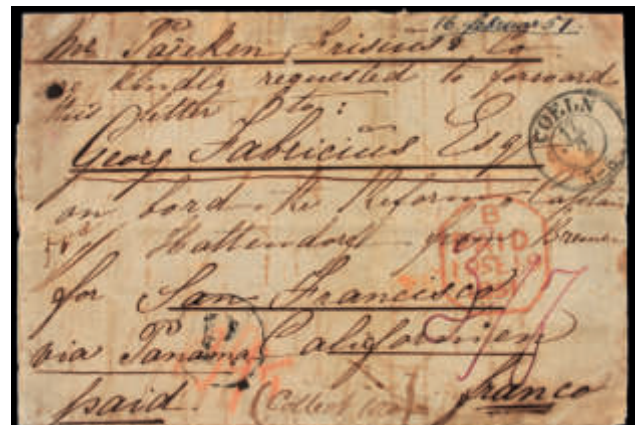 16 februar 51.
Mr Taëcken Frisius & Co
are kindly requested to forward
this letter to:
Georg Fabricius Esq
on bord the Reform, Captain
Hattendorf from Bremen
for San Francisco
via Panama Californien
paid. franco
COELN
B
PAID